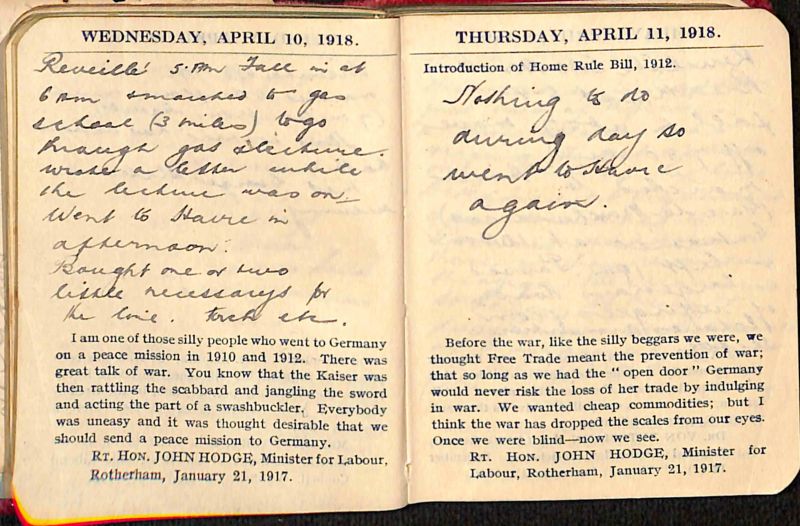 WEDNESDAY, APRIL 10, 1918.
Reveille 5. AM Fall in at
6 AM & marched to gas
school (3 miles) to go
through gas & lecture.
wrote a letter while
the lecture was on.
Went to Havre in
afternoon.
Bought one or two
little necessarys for
the line. torch etc.
I am one of those silly people who went to Germany
on a peace mission in 1910 and 1912. There was
great talk of war. You know that the Kaiser was
then rattling the scabbard and jangling the sword
and acting the part of a swashbuckler. Everybody
was uneasy and it was thought desirable that we
should send a peace mission to Germany.
RT. HON. JOHN HODGE, Minister for Labour,
Rotherham, January 21, 1917.
THURSDAY, APRIL 11, 1918.
Introduction of Home Rule Bill, 1912.
Nothing to do
during day so
went to Havre
again.
Before the war, like the silly beggars we were, we
thought Free Trade meant the prevention of war;
that so long as we had the "open door" Germany
would never risk the loss of her trade by indulging
in war. We wanted cheap commodities; but I
think the war has dropped the scales from our eyes.
Once we were blind—now we see.
RT. HON. JOHN HODGE, Minister for
Labour, Rotherham, January 21, 1917.